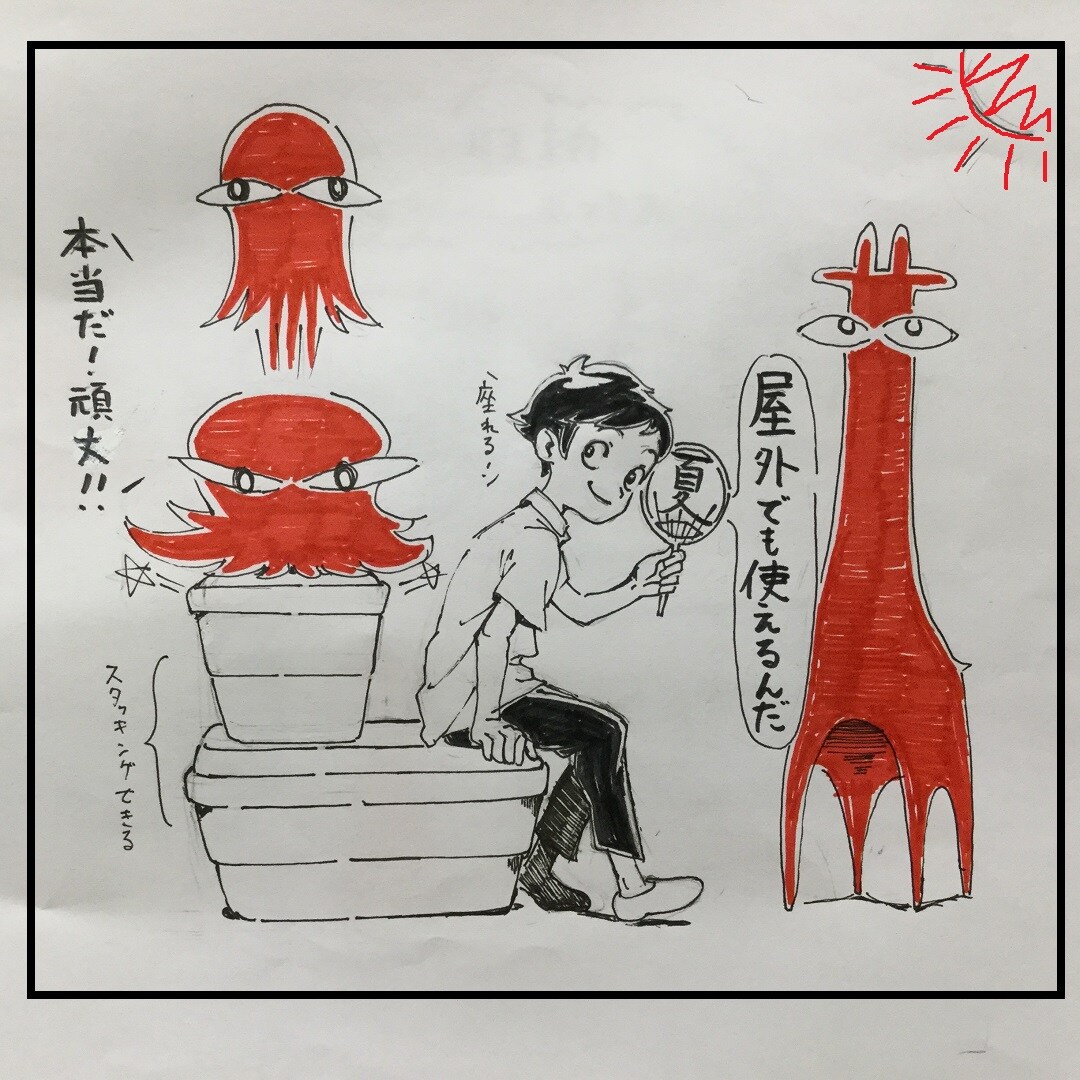 屋外でも使えるんだ
夏
座れる!
本当だ!頑丈!!
スタッキングできる